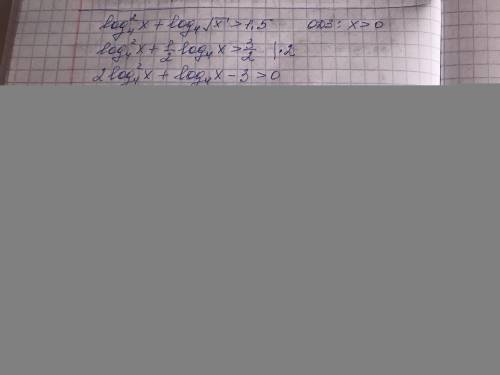 log₄²x + log₄√x > 1,5 ОДЗ: x>0
log₄²x + 1/2 log₄x > 3/2 |·2
2log₄²x + log₄x - 3 > 0